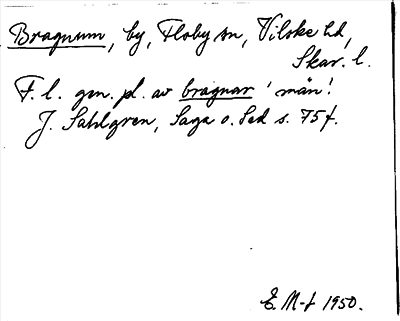 Bragnum, by, Floby sn, Vilske hd,
Skar. l.
F. l. gen. pl. av bragnar 'män'.
J. Sahlgren, Saga o. Sed s. 75 f.
E. M-f 1950.